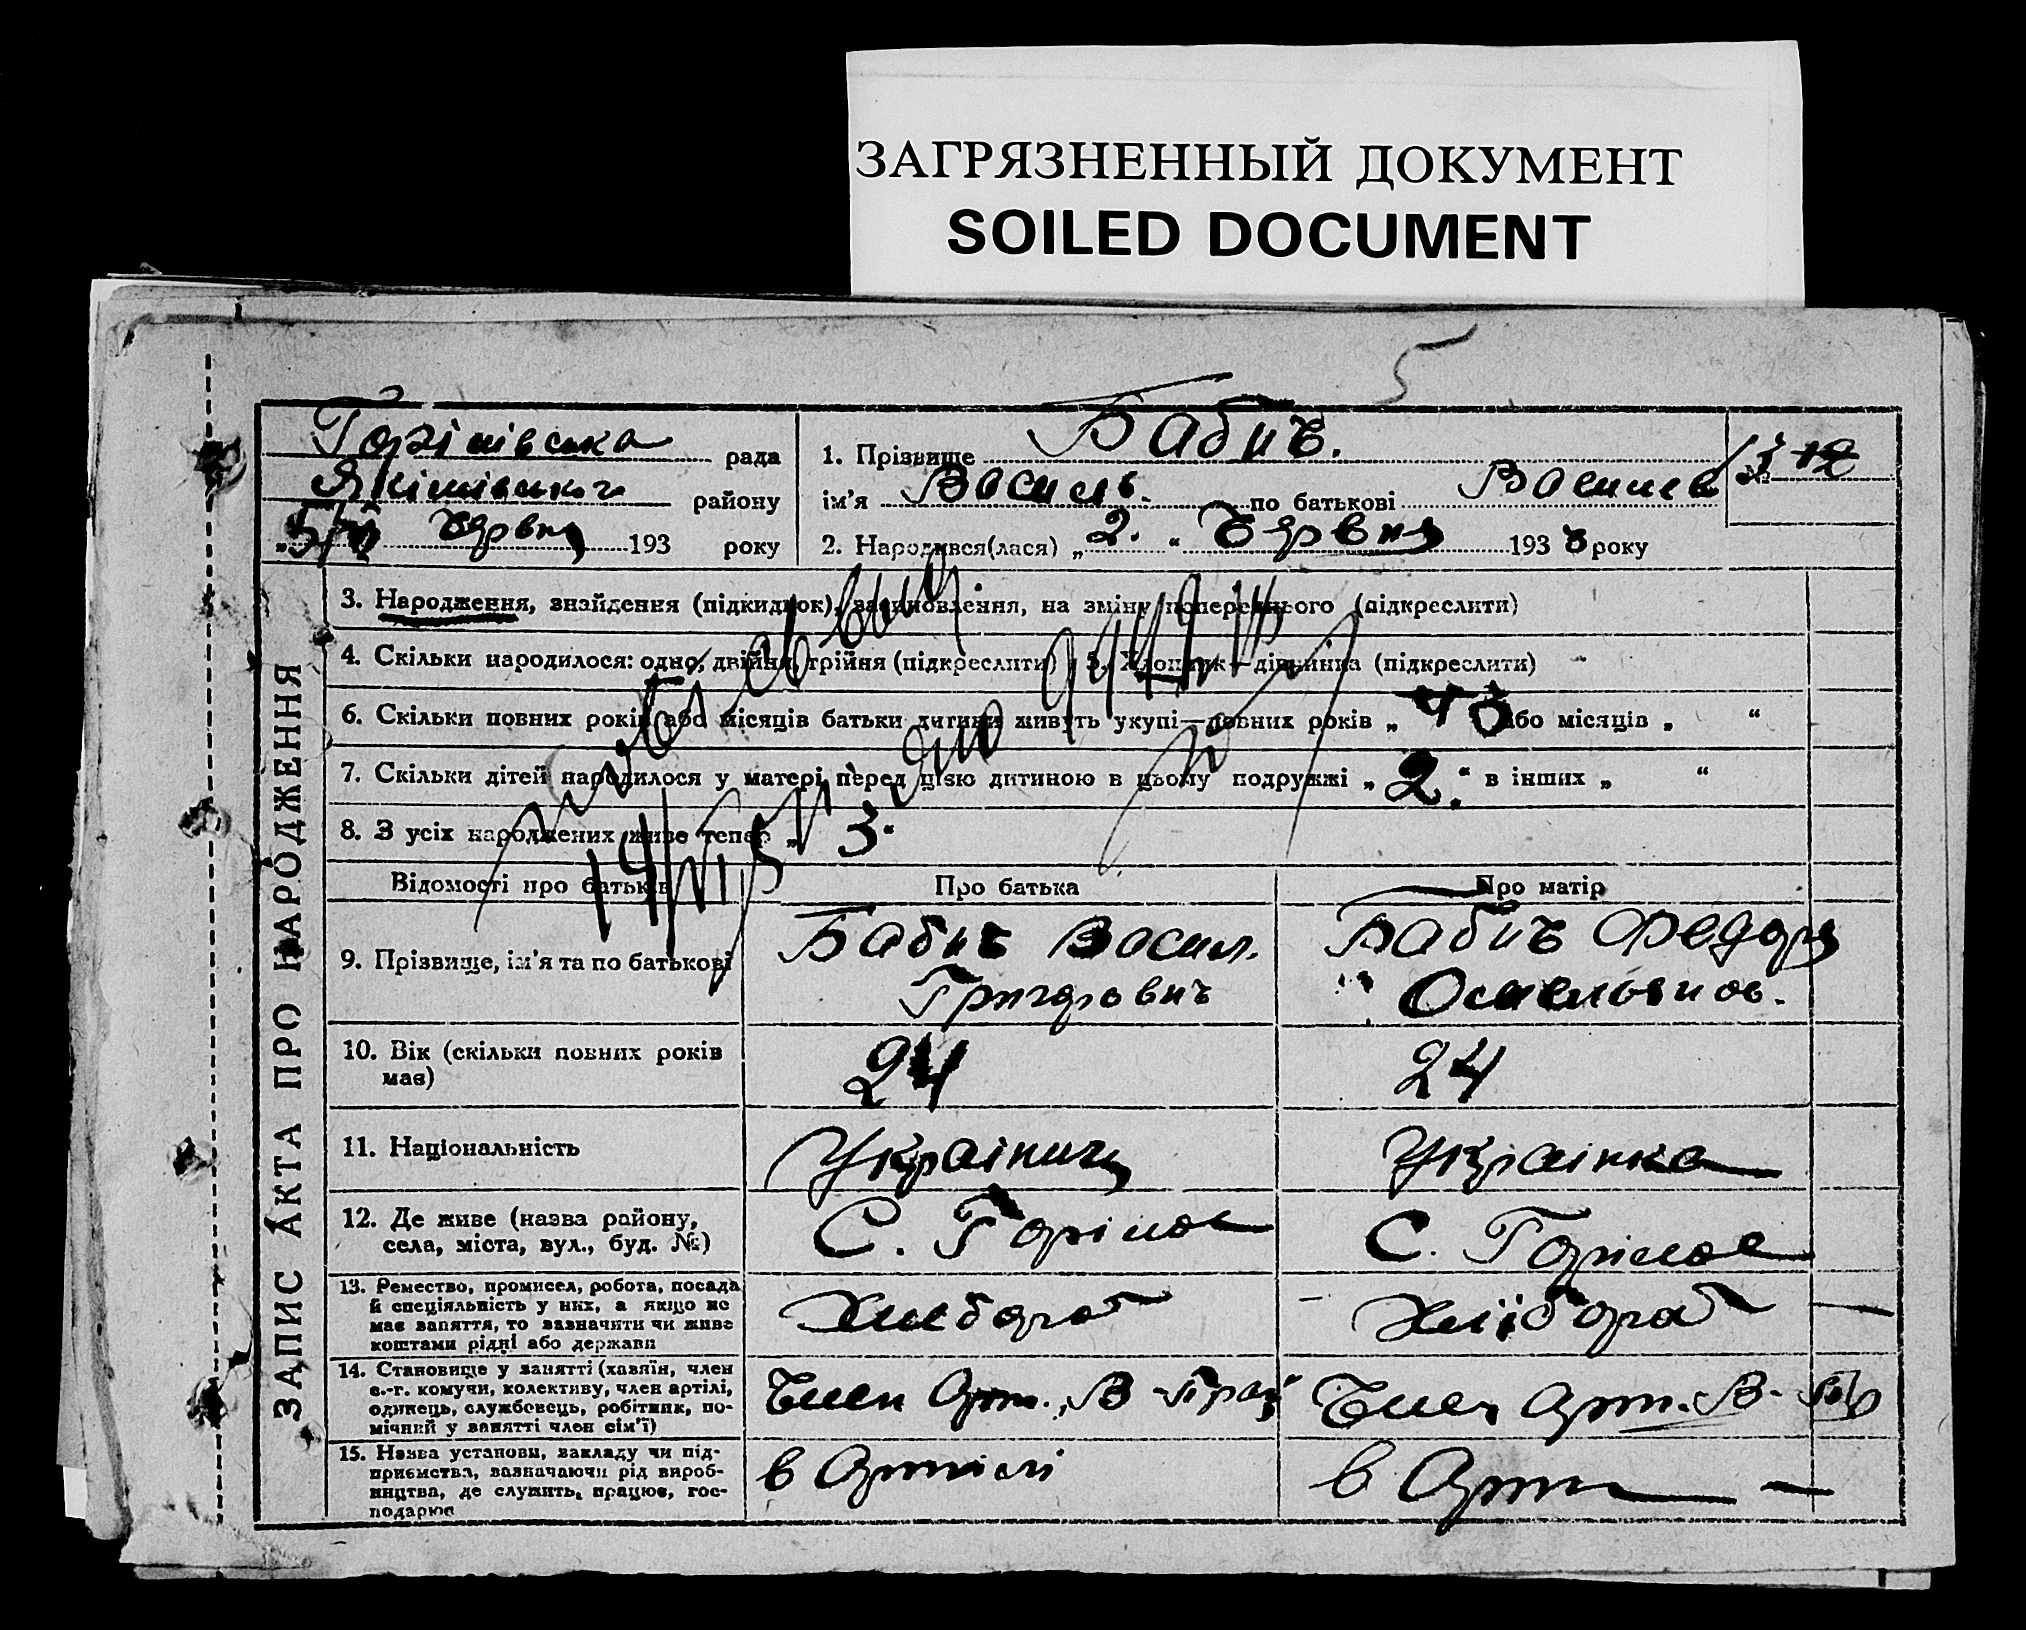 ЗАГРЯЗНЕННЫЙ ДОКУМЕНТ
SOILED DOCUMENT
5
рада
району
Червня 193 року
1. Прізвище Бабич.
ім'я Василь. по батькові Василев
2. Народився(лася) „2.“ Червня 193 року
№ 12
ЗАПИС АКТА ПРО НАРОДЖЕННЯ
3. Народження, знайдення (підкидьок), всиновлення, на зміну попереднього (підкреслити)
4. Скільки народилося: одно, двійня, трійня (підкреслити) 5. Хлопчик—дівчинка (підкреслити)
6. Скільки повних років або місяців батьки дитини живуть укупі—повних років „ або місяців „ “
7. Скільки дітей народилося у матері перед цією дитиною в цьому подружжі „2.“ в інших „ “
8. З усіх народжених живе тепер „ 3“
Відомості про батьків
Про батька
Про матір
9. Прізвище, ім'я та по батькові
Бабич Васил.
Григорович
Бабич Федора
10. Вік (скільки повних років
має)
24
24
11. Національність
Українец
Українка
12. Де живе (назва району,
села, міста, вул., буд. №)
С.
С.
13. Ремество, промисел, робота, посада
й спеціяльність у них, а якщо не
має заняття, то зазначити чи живе
коштами рідні або держави
Хлебороб
Хліїбороб
14. Становище у занятті (хазяїн, член
с.-г. комуни, колективу, член артілі,
одинець, службовець, робітник, по-
мічний у занятті член сім'ї)
Член Арт. В-
Член Арт. В-
15. Назва установи, закладу чи під-
приємства, зазначаючи рід вироб-
ництва, де служить, працює, гос-
подарює
в Артілі
в Арт